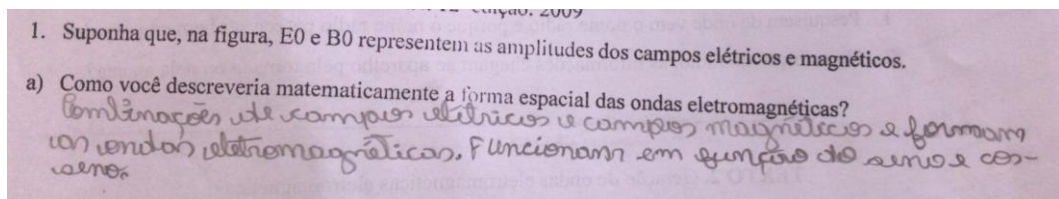 edição. 2009
1. Suponha que, na figura, E0 e B0 representem as amplitudes dos campos elétricos e magnéticos.
a) Como você descreveria matematicamente a forma espacial das ondas eletromagnéticas?
Combinações de campos elétricos e campos magnéticos e formam
as ondas eletromagnéticas. Funcionam em função do seno e cos-
seno.